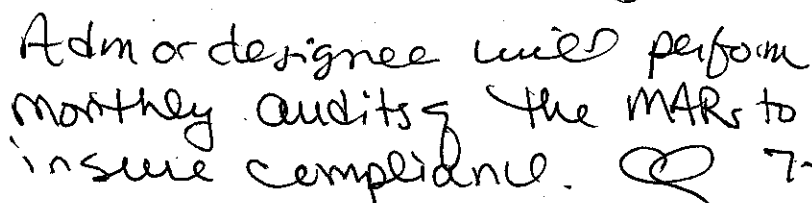 Adm or designee will perform
monthly audits of the MARs to
insure compliance. 7-